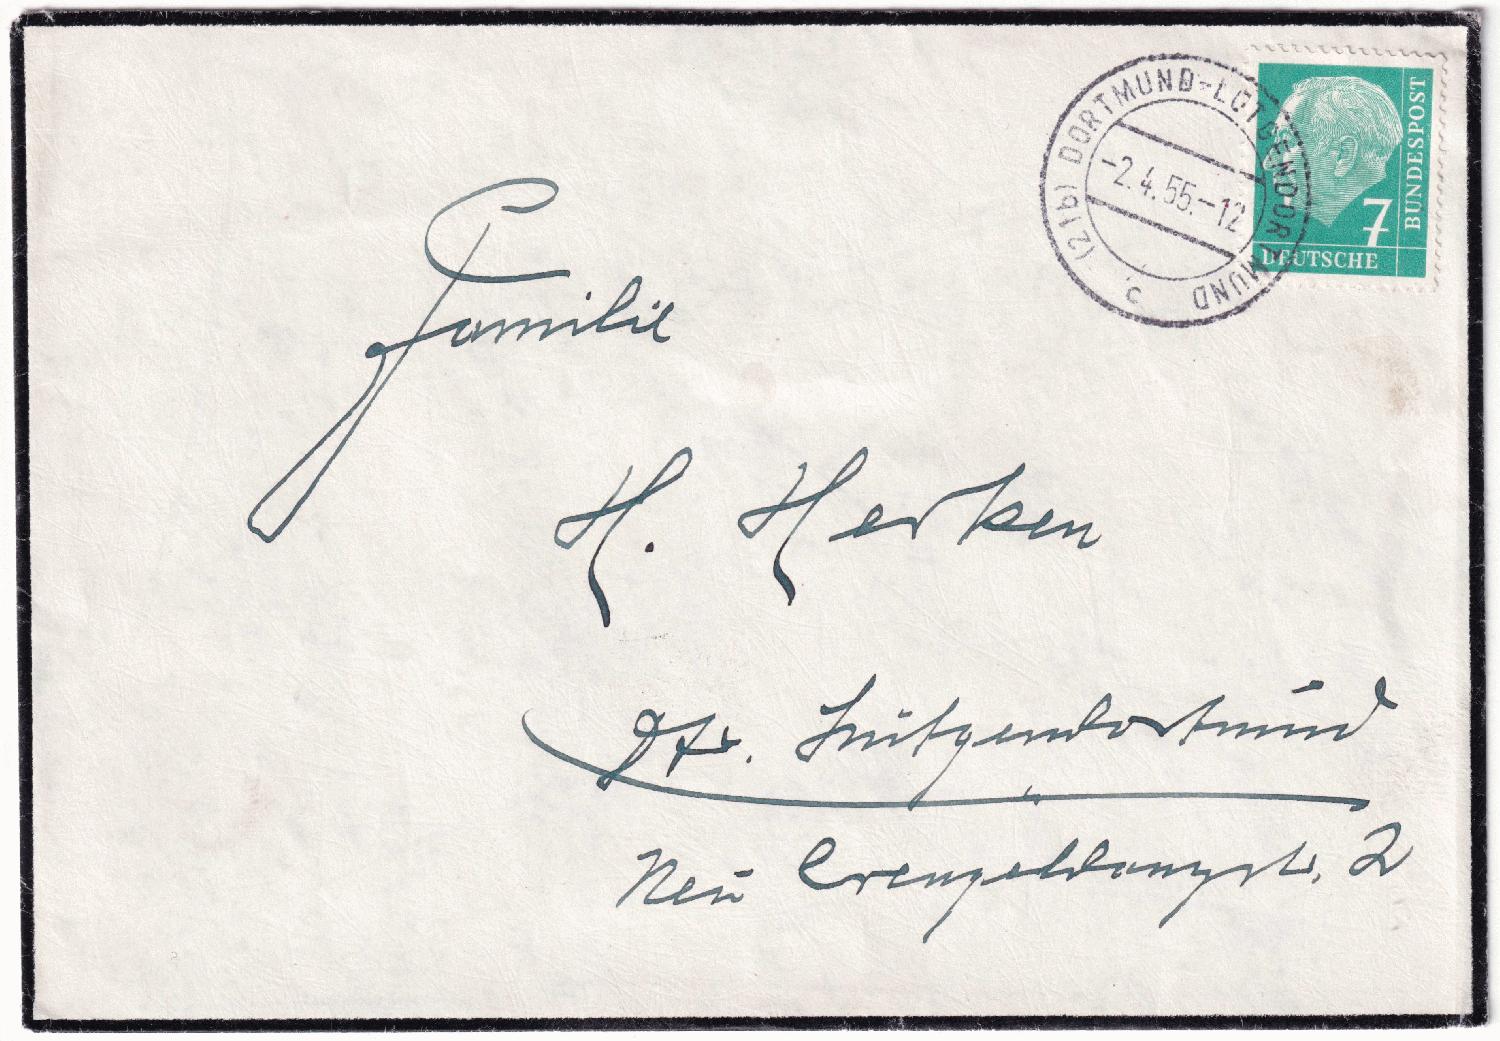 (21b) DORTMUND-LÜTGENDORTMUND
-2.4.55.-12
c
7
DEUTSCHE
BUNDESPOST
Familie
H. Herken
Lütgendortmund
Neu Crengeldanzstr. 2